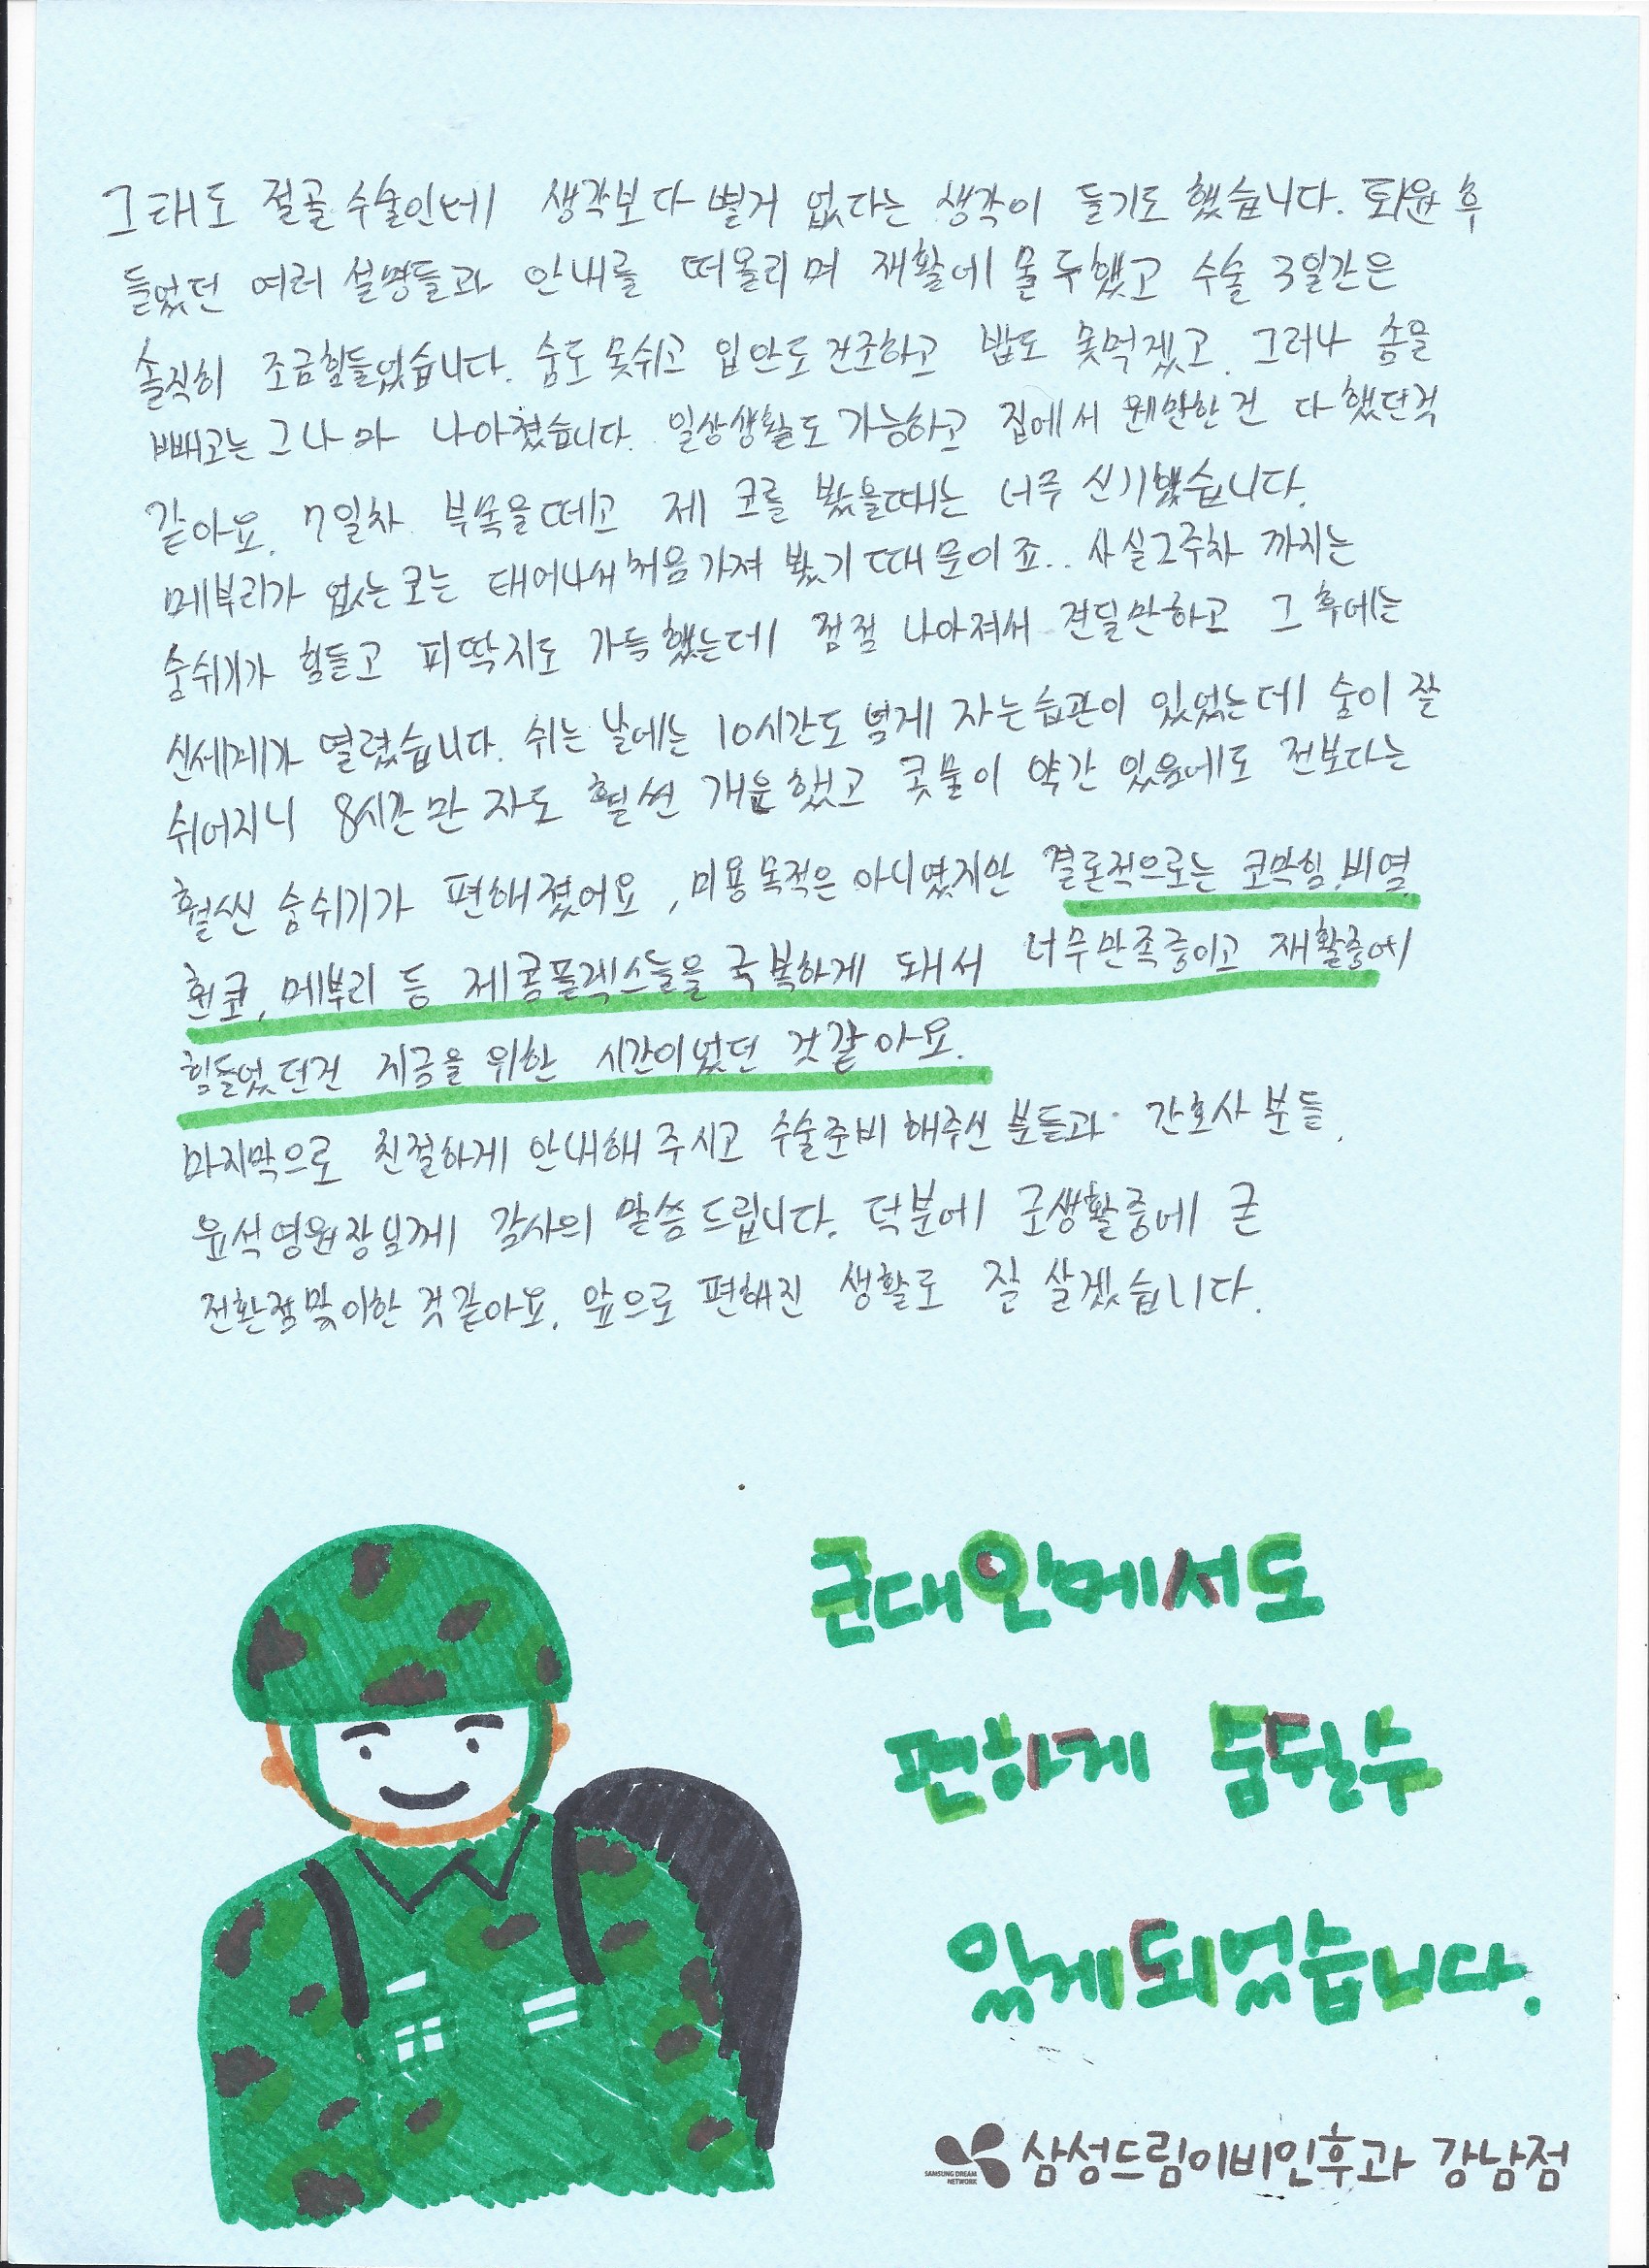 그래도 절골수술인데 생각보다 별거 없다는 생각이 들기도 했습니다. 퇴원 후
들었던 여러 설명들과 안내를 떠올리며 재활에 몰두했고 수술 3일간은
솔직히 조금힘들었습니다. 숨도 못쉬고 입안도 건조하고 밥도 못먹겠고. 그러나 솜을
빼고는 그나마 나아졌습니다. 일상생활도 가능하고 집에서 웬만한건 다 했던것
같아요. 7일차 부목을떼고 제 코를 봤을때는 너무 신기했습니다.
메부리가 없는코는 태어나서 처음가져 봤기 때문이죠.. 사실2주차 까지는
숨쉬기가 힘들고 피딱지도 가득했는데 점점 나아져서 견딜만하고 그 후에는
신세계가 열렸습니다. 쉬는 날에는 10시간도 넘게 자는습관이 있었는데 숨이 잘
쉬어지니 8시간만 자도 훨씬 개운했고 콧물이 약간 있음에도 전보다는
훨씬 숨쉬기가 편해졌어요, 미용목적은 아니였지만 결론적으로는 코막힘, 비염,
휜코, 메부리 등 제콤플렉스들을 극복하게 돼서 너무만족중이고 재활중에
힘들었던건 지금을 위한 시간이었던 것같아요.
마지막으로 친절하게 안내해 주시고 수술준비 해주신 분들과 간호사 분들,
윤석영원장님께 감사의 말씀드립니다. 덕분에 군생활중에 큰
전환점맞이한 것같아요. 앞으로 편해진 생활로 잘 살겠습니다.
군대안에서도
편하게 숨쉴수
있게되었습니다.
SAMSUNG DREAM NETWORK
삼성드림이비인후과 강남점